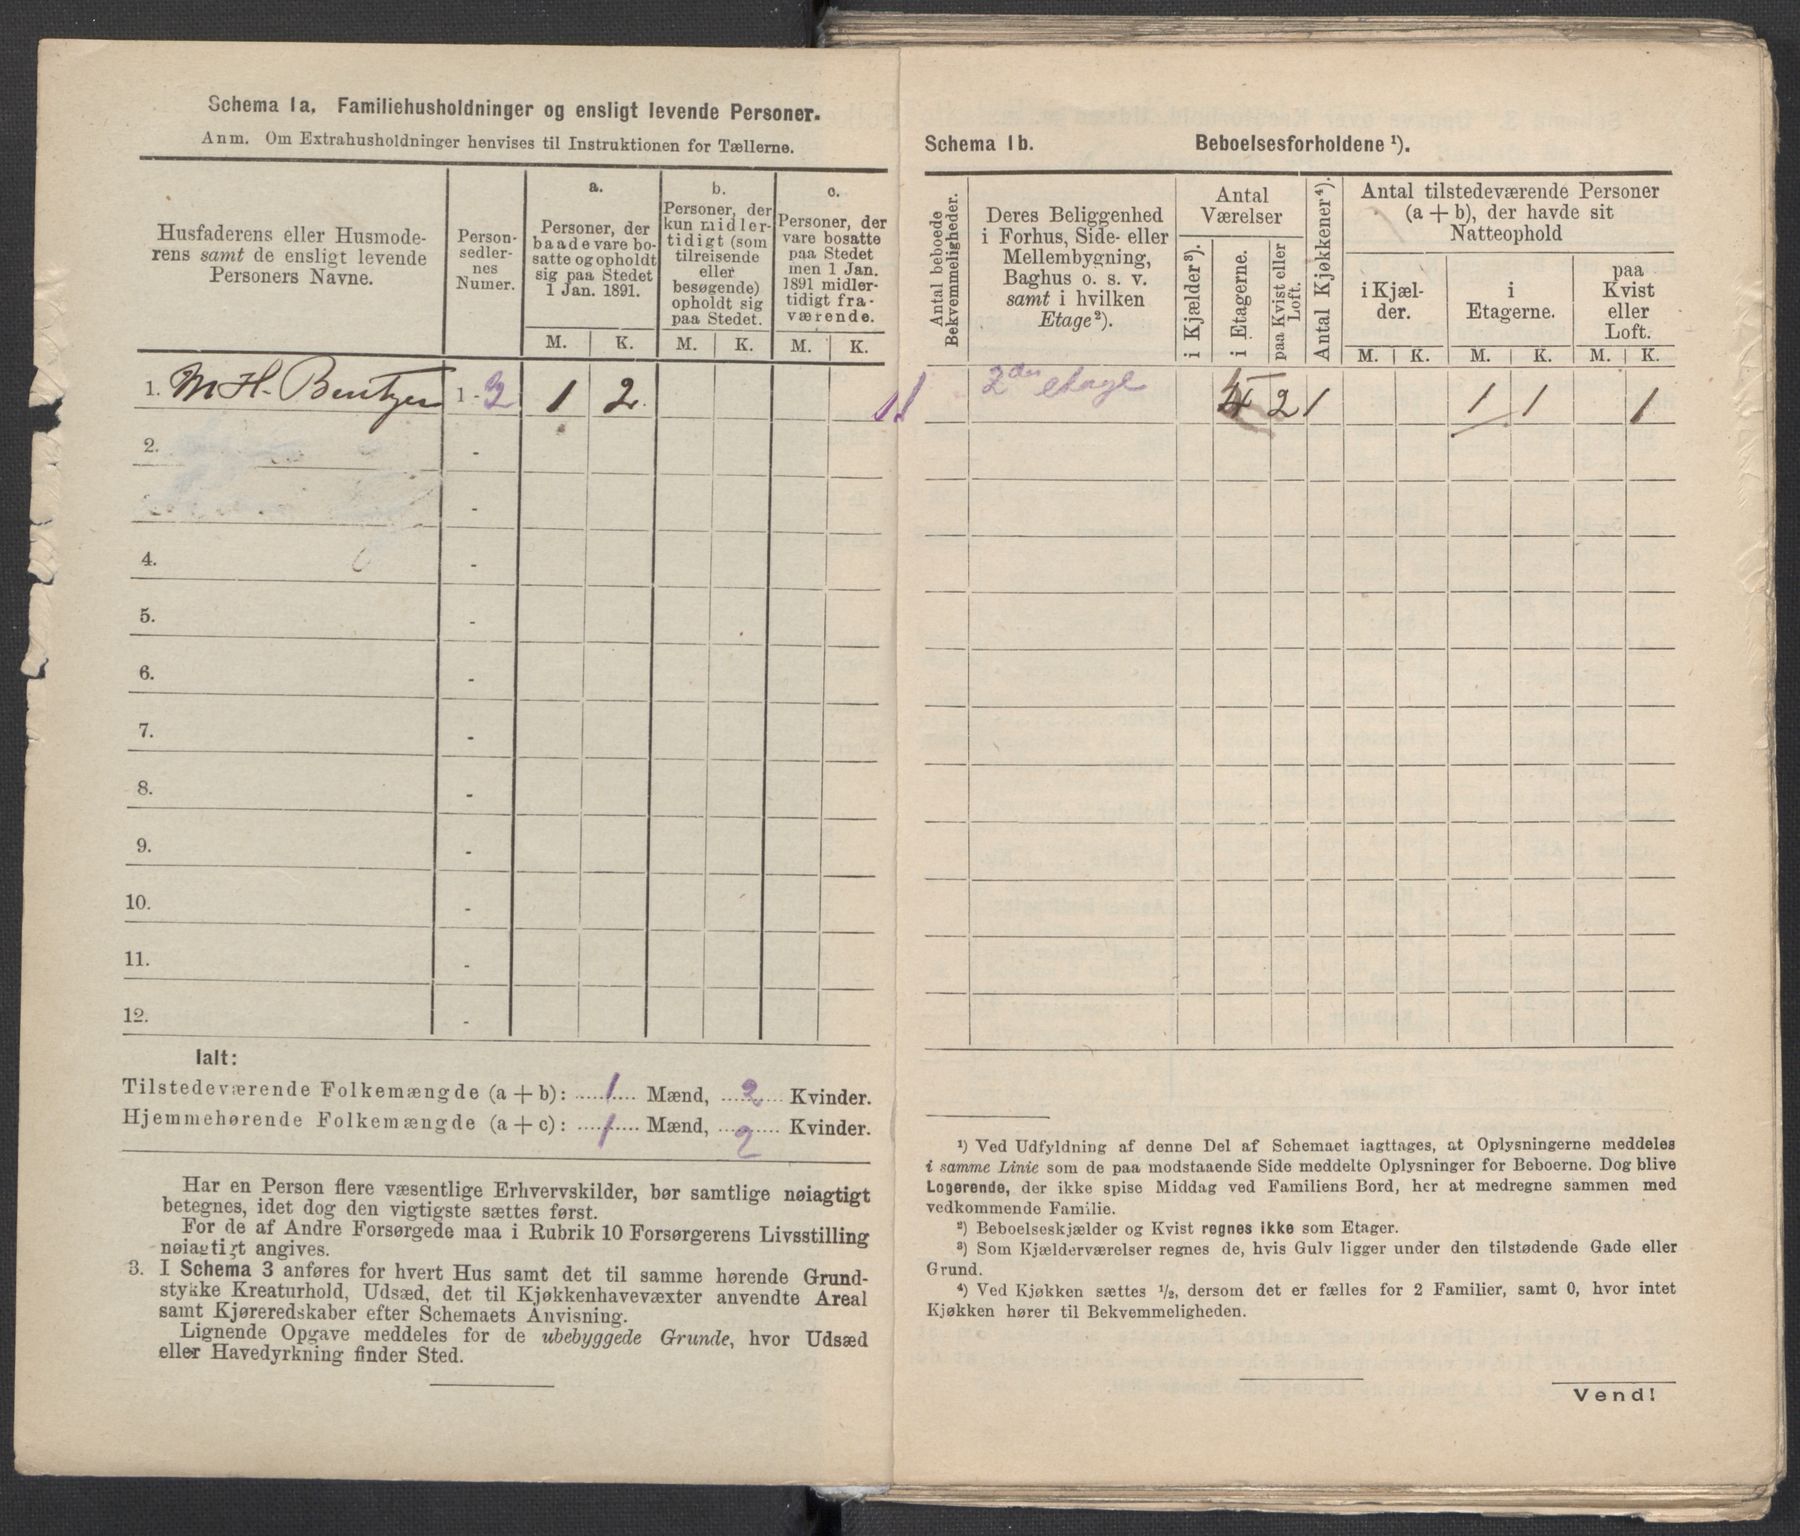 Schema 1a. Familiehusholdninger og ensligt levende Personer.
Anm. Om Extrahusholdninger henvises til Instruktionen for Tællerne.
Husfaderens eller Husmode-
rens samt de ensligt levende
Personers Navne.
Person-
sedler-
nes
Numer.
a.
Personer, der
baade vare bo-
satte og opholdt
sig paa Stedet
1 Jan. 1891.
b.
Personer, der
kun midler-
tidigt (som
tilreisende
eller
besøgende)
opholdt sig
paa Stedet.
c.
Personer, der
vare bosatte
paa Stedet
men 1 Jan.
1891 midler-
tidigt fra-
værende.
M. K. M. K. M. K.
1. M H. Bentzen 1 - 3 1 2
2. -
-
4. -
5. -
6. -
7. -
8. -
9. -
10. -
11. -
12. -
Ialt:
Tilstedeværende Folkemængde (a + b): 1 Mænd, 2 Kvinder.
Hjemmehørende Folkemængde (a + c): 1 Mænd, 2 Kvinder.
Har en Person flere væsentlige Erhvervskilder, bør samtlige nøiagtigt
betegnes, idet dog den vigtigste sættes først.
For de af Andre Forsørgede maa i Rubrik 10 Forsørgerens Livsstilling
nøiagtigt angives.
3. I Schema 3 anføres for hvert Hus samt det til samme hørende Grund-
stykke Kreaturhold, Udsæd, det til Kjøkkenhavevæxter anvendte Areal
samt Kjøreredskaber efter Schemaets Anvisning.
Lignende Opgave meddeles for de ubebyggede Grunde, hvor Udsæd
eller Havedyrkning finder Sted.
Schema 1b. Beboelsesforholdene ¹).
Antal beboede
Bekvemmeligheder.
Deres Beliggenhed
i Forhus, Side- eller
Mellembygning,
Baghus o. s. v.
samt i hvilken
Etage²).
Antal
Værelser
i Kjælder³).
i Etagerne.
paa Kvist eller
Loft.
Antal Kjøkkener⁴).
Antal tilstedeværende Personer
(a + b), der havde sit
Natteophold
i Kjæl-
der.
i
Etagerne.
paa
Kvist
eller
Loft.
M. K. M. K. M. K.
1 2den etage 2 1 1 1 1
¹) Ved Udfyldning af denne Del af Schemaet iagttages, at Oplysningerne meddeles
i samme Linie som de paa modstaaende Side meddelte Oplysninger for Beboerne. Dog blive
Logerende, der ikke spise Middag ved Familiens Bord, her at medregne sammen med
vedkommende Familie.
²) Beboelseskjælder og Kvist regnes ikke som Etager.
³) Som Kjælderværelser regnes de, hvis Gulv ligger under den tilstødende Gade eller
Grund.
⁴) Ved Kjøkken sættes ½, dersom det er fælles for 2 Familier, samt 0, hvor intet
Kjøkken hører til Bekvemmeligheden.
Vend!